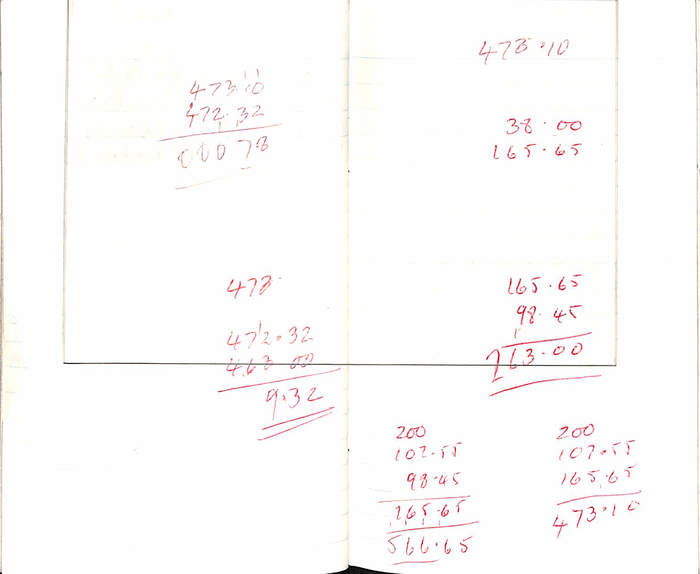 473.10
472.32
000 78
473.
472.32
463 00
9.32
473.10
38.00
165.65
165.65
98.45
263.00
200
102.55
98.45
165.65
566.65
200
107.55
165.65
473.10